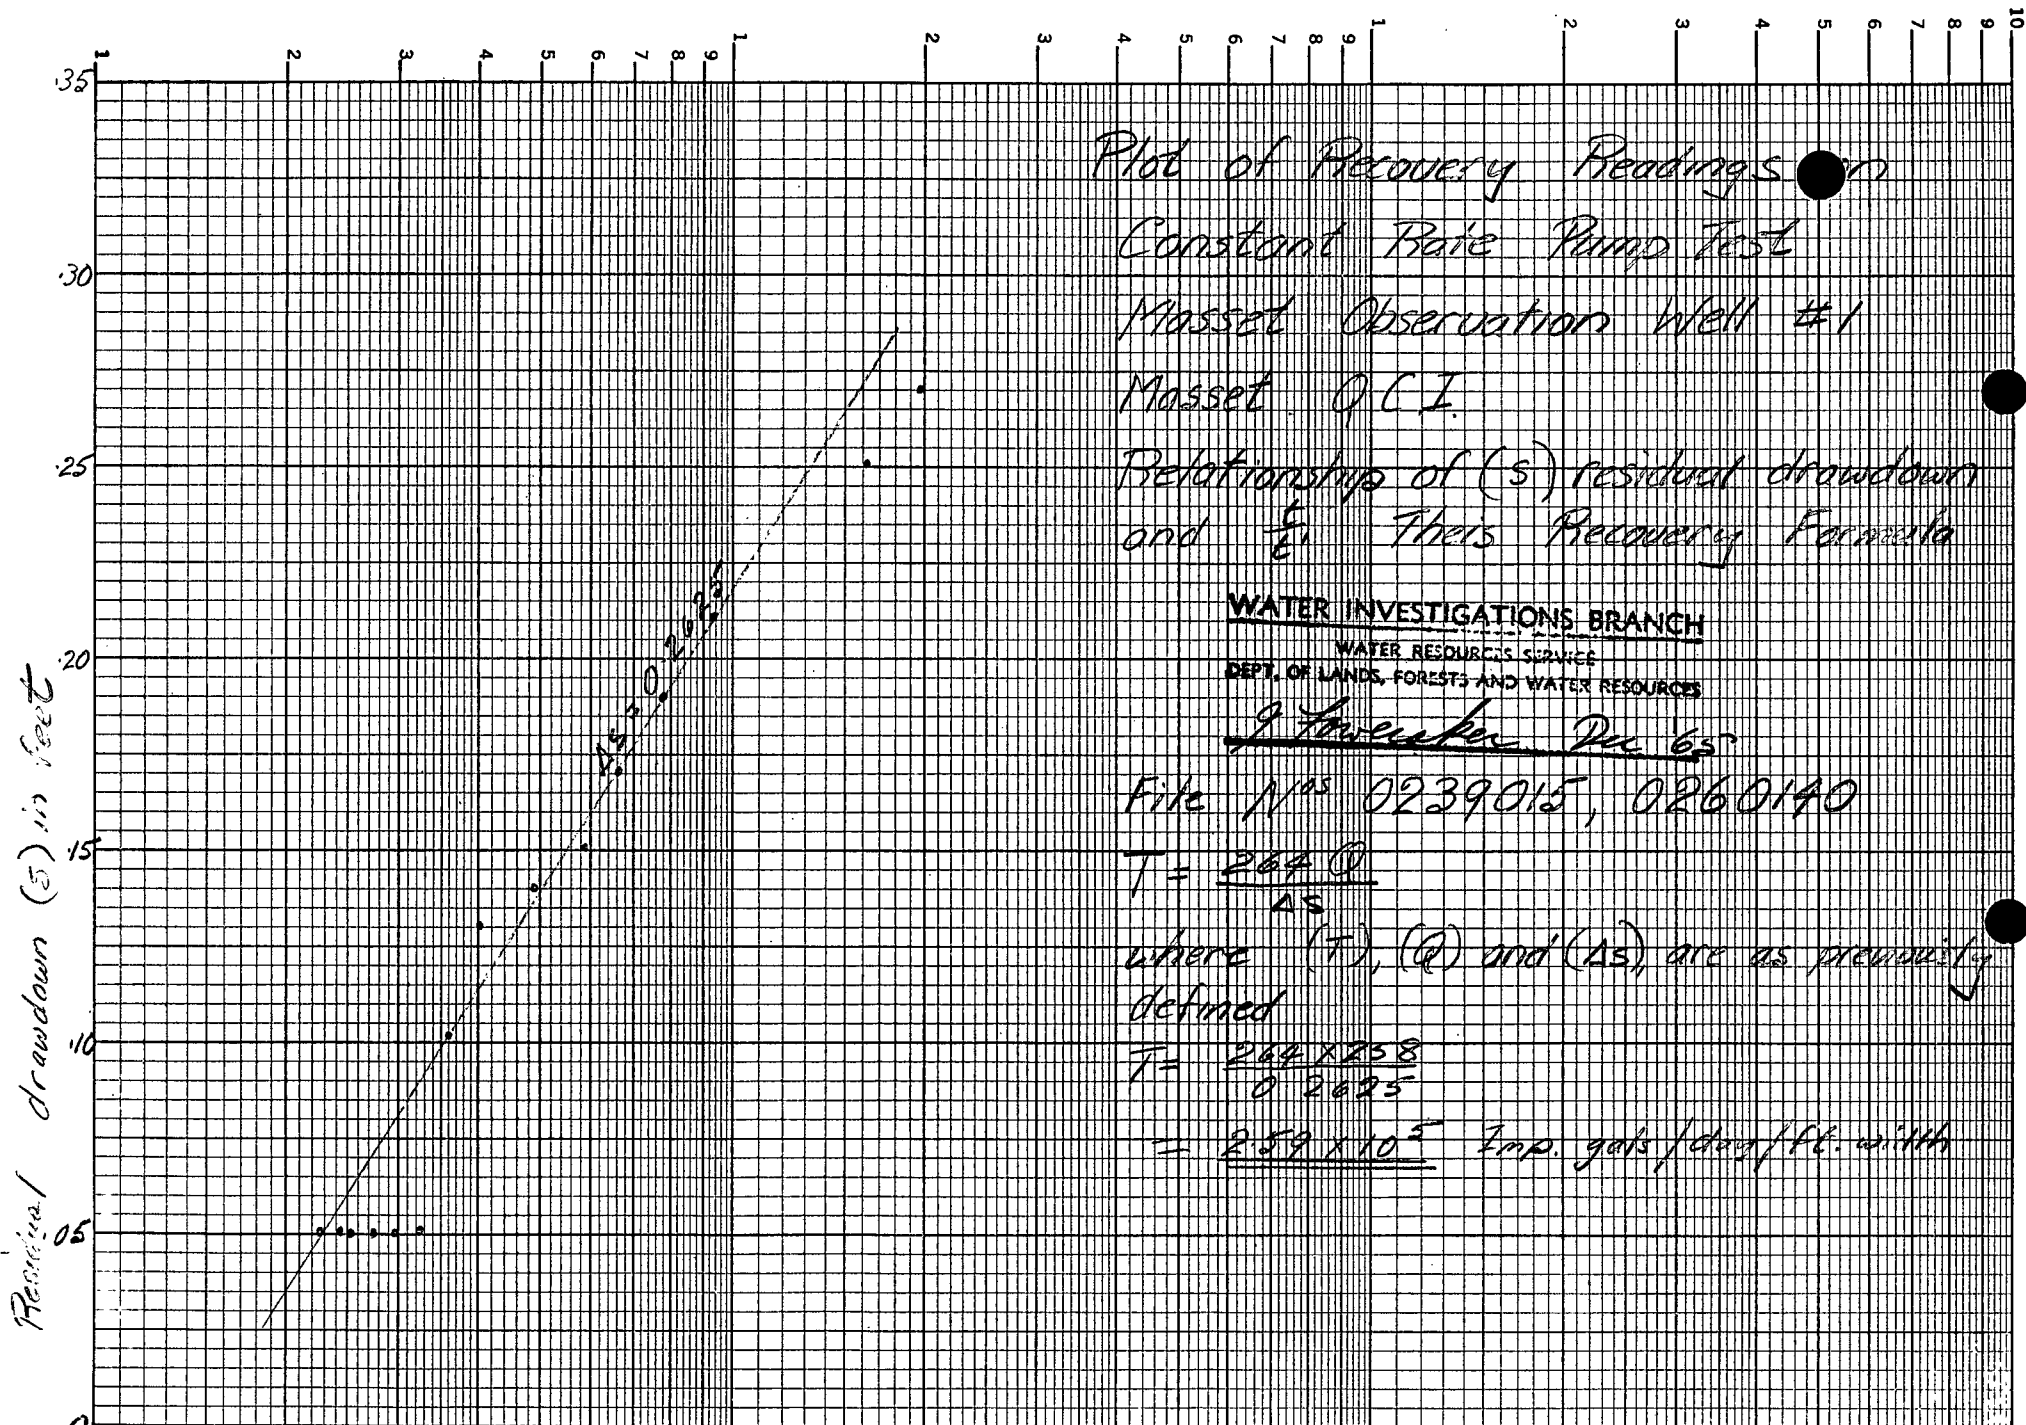 1 2 3 4 5 6 7 8 9 1 2 3 4 5 6 7 8 9 1 2 3 4 5 6 7 8 9 10
.35
.30
.25
.20
.15
.10
.05
0
Residual drawdown (s) in feet
Δs = 0.2625
Plot of Recovery Readings on
Constant Rate Pump Test
Masset Observation Well #1
Masset Q C I.
Relationship of (s) residual drawdown
and t/t' Theis Recovery Formula
WATER INVESTIGATIONS BRANCH
WATER RESOURCES SERVICE
DEPT. OF LANDS, FORESTS AND WATER RESOURCES
Dec 65
File Nos 0239015, 0260140
T = 264 Q
Δs
where (T), (Q) and (Δs) are as previously
defined
T = 264 x 258
0.2625
= 2.59 x 10^5 Imp. gals/day/ft. width